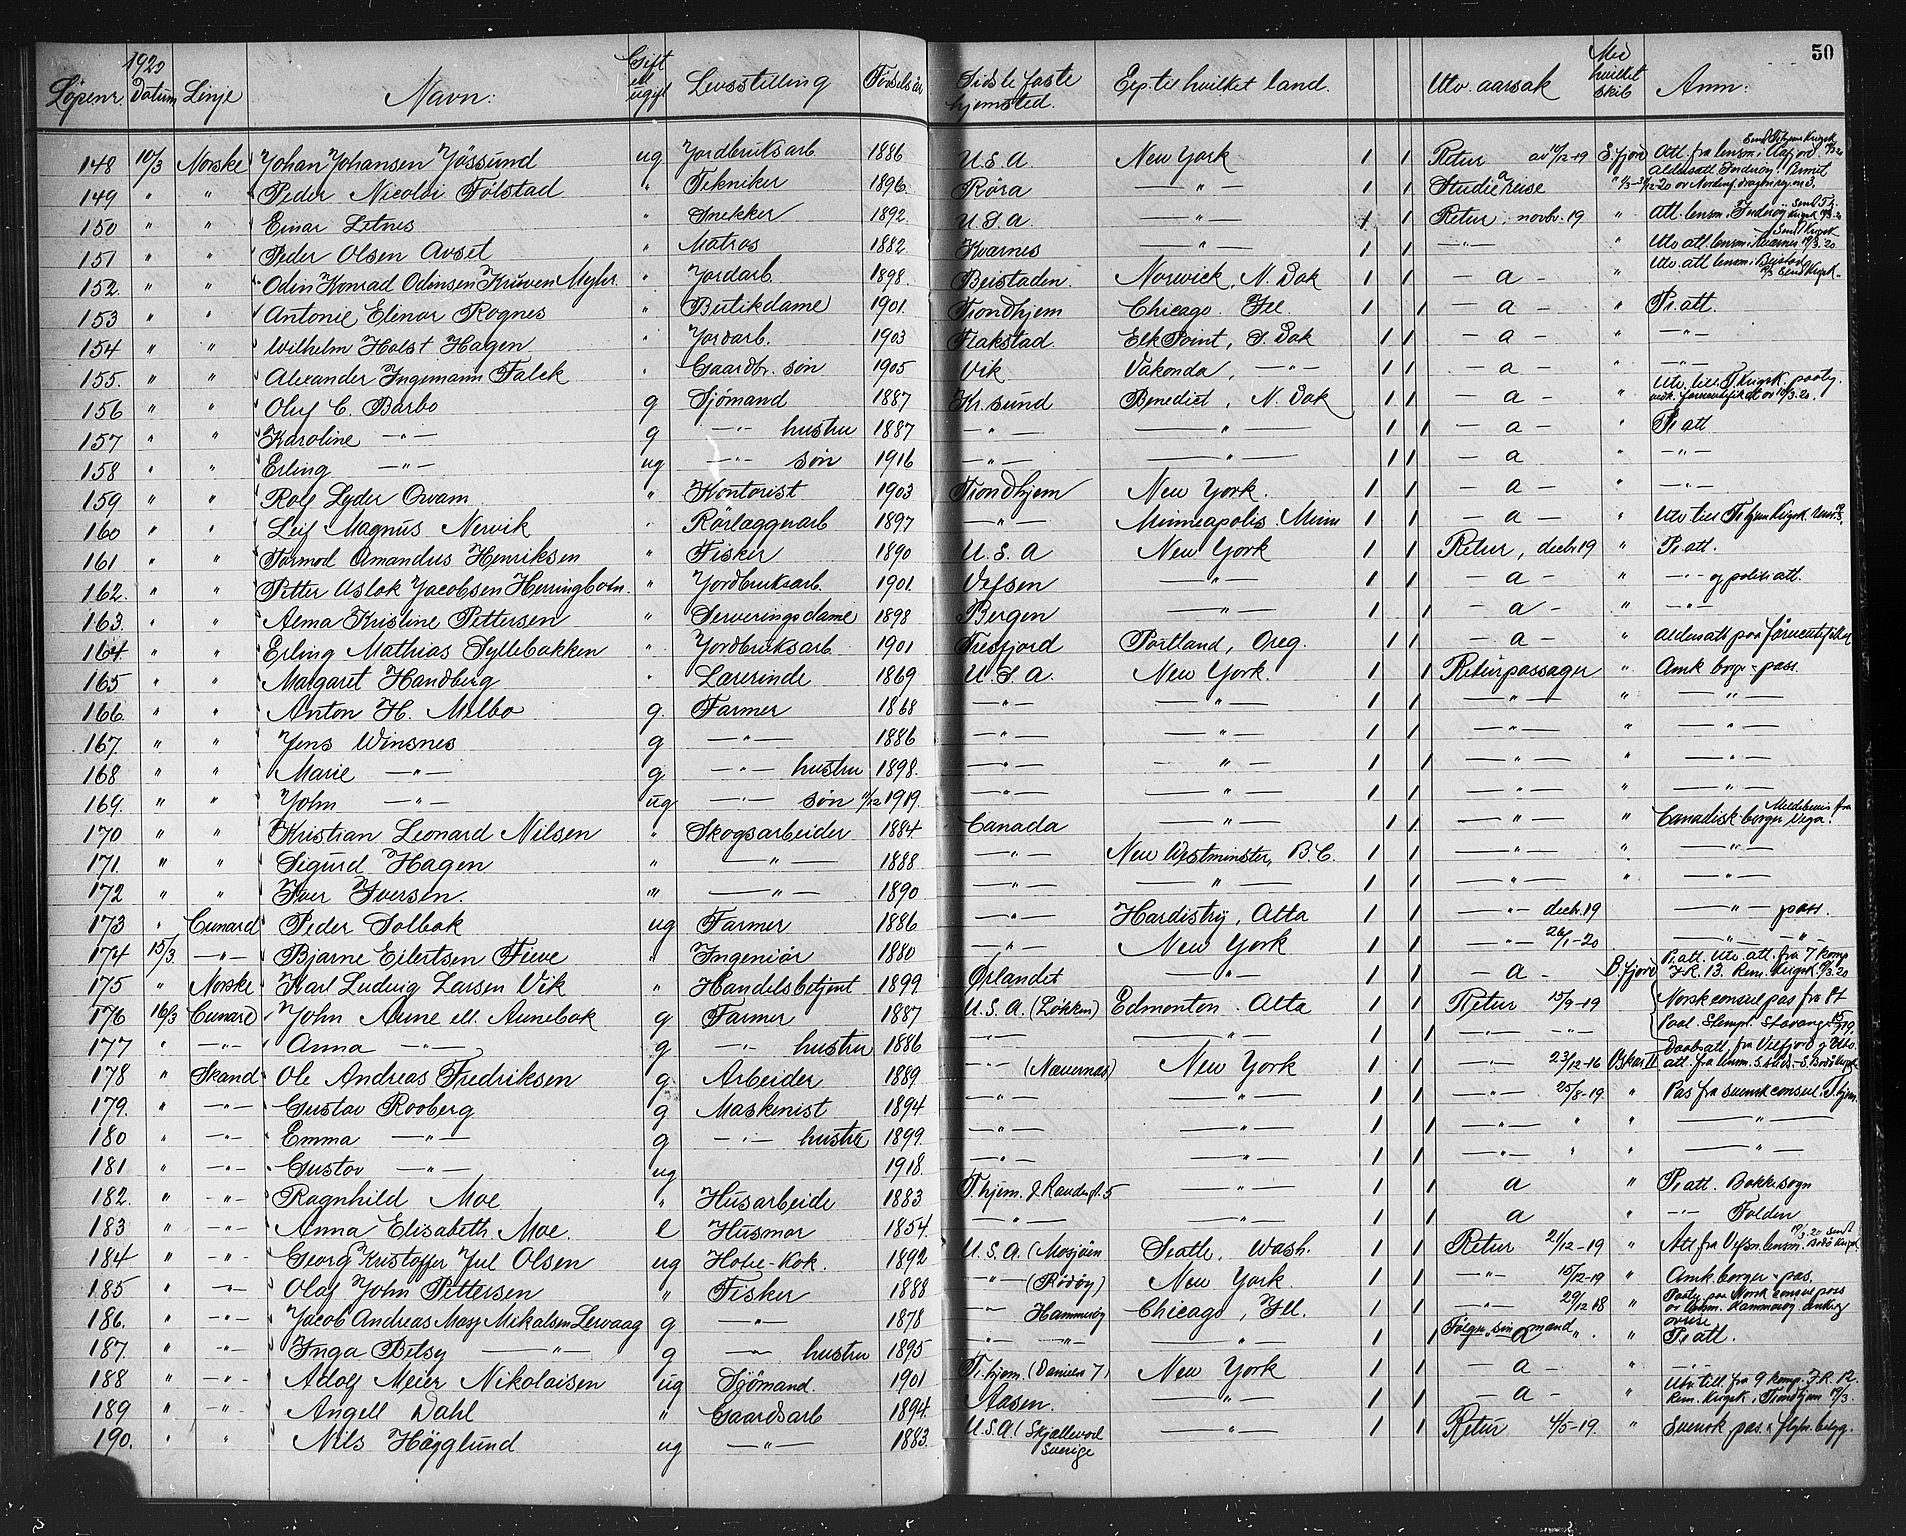 50
1920
Löpenr. Datum Linje Navn: Gift el. ugift Livsstilling Födselsår Sidste faste hjemsted. Exp. til hvilket land. Utv. aarsak Med hvilket skib Anm:
148 10/3 Norske Johan Johansen Jössund ug Jordbruksarb 1886 U.S.A. New York 1 1 Retur E.fjord Att. fra lensm. i Aafjord
149 " " Peder Nicolai Fölstad " Tekniker 1896 Röra —"— 1 1 Studiereise
150 " " Einar Letnes " Snekker 1892 U.S.A. —"— 1 1 Retur, novbr. 19 " Att. lensm. Inderöy
151 " " Peder Olsen Avset " Matros 1882 Kvarnes —"— 1 1 —"— " Utv. att. lensm. Kvarnes
152 " " Odin Konrad Odinsen " Jordarb. 1898 Beistaden Norwick, N. Dak 1 1 — a — " Utv. att. lensm. i Beistad
153 " " Antonie Elinar Rognes " Butikdame 1901 Trondhjem Chicago. Ill. 1 1 — a — " Pr att.
154 " " Wilhelm Holst Hagen " Jordarb. 1903 Flakstad Elk Point, S. Dak 1 1 — a — " —"—
155 " " Alexander Ingemann Falck " Gaardbr. sön 1905 Vik Vakonda, —"— 1 1 — a — " —"—
156 " " Oluf C. Barbo g Sjömand 1887 Kr.sund Benedict, N. Dak 1 1 — a — "
157 " " Karoline —"— g —"— hustru 1887 —"— —"— 1 1 — a — " Pr att
158 " " Erling —"— ug —"— sön 1916 —"— —"— 1 1 — a — " —"—
159 " " Rolf Lyder Qvam " Kontorist 1903 Trondhjem New York. 1 1 — a — " —"—
160 " " Leif Magnus Nervik " Rörlæggerarb 1897 —"— Minneapolis. Minn 1 1 — a — "
161 " " Tormod Amandus Henriksen " Fisker 1890 U.S.A New York 1 1 Retur, decbr 19 " Pr att.
162 " " Petter Aslak Jacobsen Herringbotn " Jordbruksarb. 1901 Vefsen —"— 1 1 — a — " —"— og politi att.
163 " " Alma Kristine Pettersen " Serveringsdame 1898 Bergen —"— 1 1 — a — " —"—
164 " " Erling Mathias Syllebakken " Jordbruksarb 1901 Tresfjord Portland, Oreg. 1 1 — a — "
165 " " Margaret Handberg " Lærerinde 1869 U.S.A. New York. 1 1 Returpassager " Amk borger-pass.
166 " " Anton H. Melbo g. Farmer 1868 —"— —"— 1 1 —"— " —"—
167 " " Jens Winsnes g —"— 1886 —"— —"— 1 1 —"— " —"—
168 " " Marie —"— g —"— hustru 1898 —"— —"— 1 1 —"— " —"—
169 " " John —"— ug —"— sön 11/12 1919 —"— —"— 1 1 —"— " —"—
170 " " Kristian Leonard Nilsen " Skogsarbeider 1884 Canada —"— 1 1 —"— " Canadisk borger Meldebevis fra Vega
171 " " Sigurd Hagen " —"— 1888 —"— New Westminster, B.C. 1 1 —"— " —"—
172 " " Iver Iversen. " —"— 1890 —"— —"— 1 1 —"— " —"—
173 " Cunard Peder Solbak ug Farmer 1886 —"— Hardisty, Alta 1 1 —"— decbr. 19 —"— pass.
174 15/3 —"— Bjarne Eilertsen Fiwe " Ingeniör 1880 —"— New York 1 1 —"— 26/1-20 —"— —"—
175 " Norske Karl Ludvig Larsen Vik " Handelsbetjent 1899 Ørlandet —"— 1 1 — a — B.fjord Pr. att. Utv. att. fra 7 komp I.R. 13.
176 16/3 Cunard John Aune ell. Aunebak g Farmer 1887 U.S.A. (Løkken) Edmonton. Alta 1 1 Retur 15/9-19 Norsk consul pas fra St Paal. Stempl. Stavanger
177 " —"— Anna —"— g —"— hustru 1886 —"— —"— 1 1 —"— —"—
178 " Skand Ole Andreas Fredriksen g Arbeider 1889 —"— (Nævernes) New York 1 1 —"— 23/12-16 Oskar II Daabsatt. fra Velfjord
179 " —"— Gustav Rooberg g Maskinist 1894 —"— —"— 1 1 —"— 25/8-19 " Pas fra svensk consul. T.hjem.
180 " —"— Emma —"— g —"— hustru 1899 —"— —"— 1 1 —"— " " —"—
181 " —"— Gustav —"— ug 1918 —"— —"— 1 1 —"— " " —"—
182 " —"— Ragnhild Moe " Husarbeide 1883 —"— 1 1 a " Pr att.
183 " —"— Anna Elisabeth Moe. e Husmor 1854 —"— —"— 1 1 a —"— Folden
184 " —"— Georg Kristoffer Jul Olsen ug Hotel-kok. 1892 U.S.A. (Mosjöen Seatle. Wash. 1 1 Retur 21/12-19 " Att fra Vefsn lensm.
185 " —"— Olaf John Pettersen " Fisker 1888 —"— (Rödöy) New York. 1 1 —"— 15/12-19 " Amk borger-pas.
186 " —"— Jacob Andreas Mikalsen Lervaag g —"— 1878 —"— Hammeröy Chicago, Ill. 1 1 —"— 29/12 18 "
187 " —"— Inga Betsy —"— g —"— hustru 1895 —"— —"— —"— 1 1 Fölger sin mand " Pr att.
188 " —"— Adolf Meier Nikolaisen ug Sjömand. 1901 Tr.hjem New York 1 1 — a — " —"—
189 " —"— Angell Dahl " Gaardsarb 1894 Aasen. —"— 1 1 — a — " Utv. till fra 9 komp. I.R. 12.
190 " " Nils Hägglund ug —"— 1883 U.S.A. Sverige —"— 1 1 Retur 4/5-19. " Svensk pas.